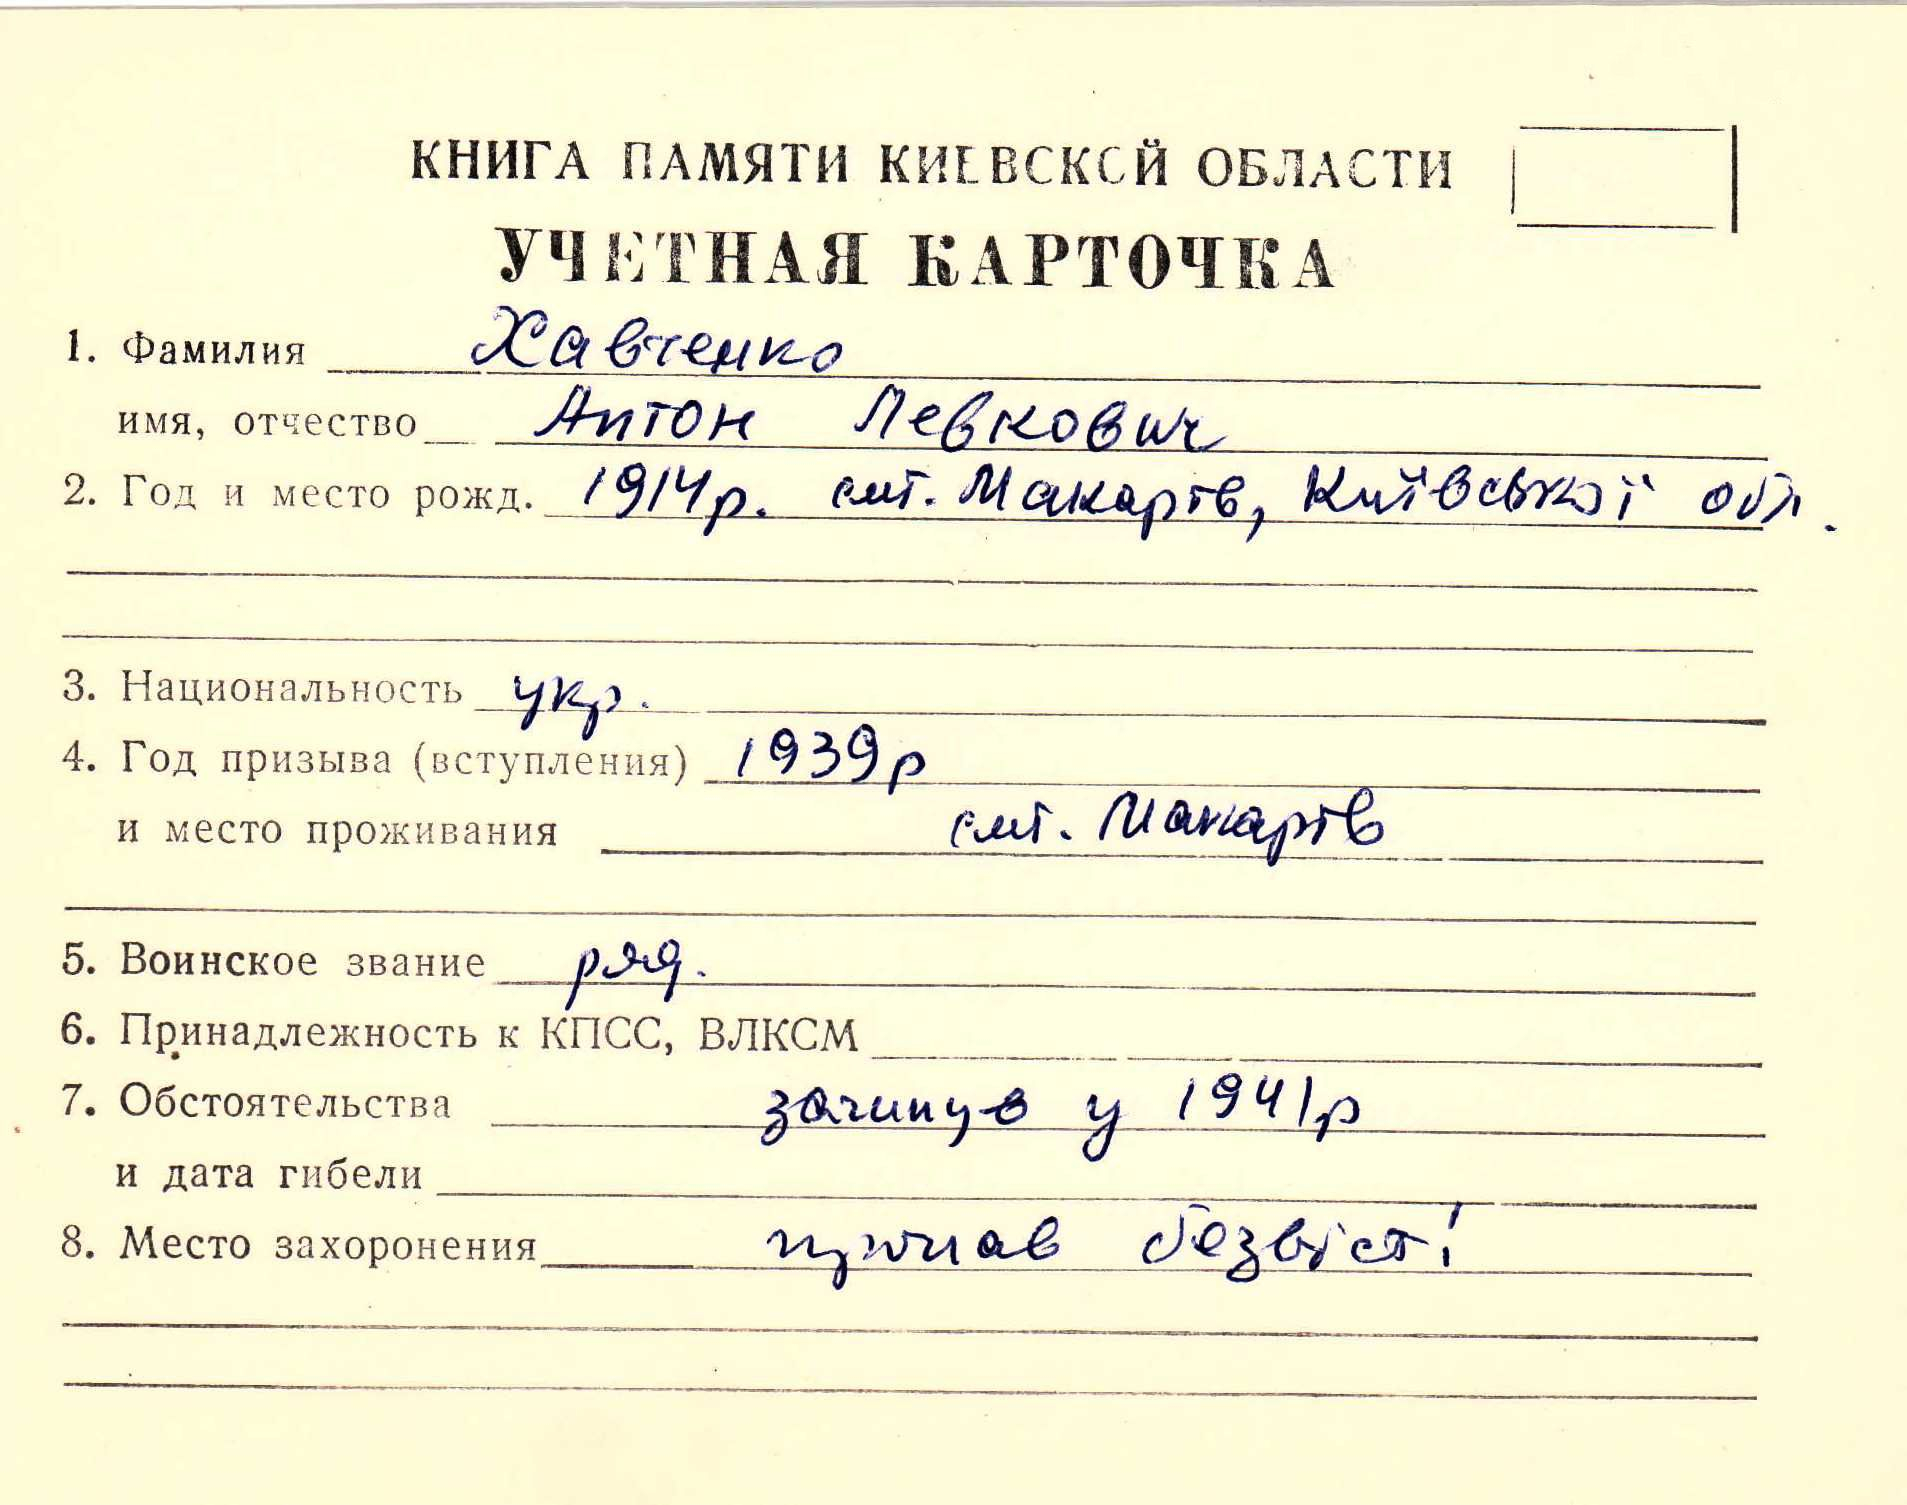 КНИГА ПАМЯТИ КИЕВСКОЙ ОБЛАСТИ
УЧЕТНАЯ КАРТОЧКА
1. Фамилия Хавченко
имя, отчество Антон Левкович
2. Год и место рожд. 1914р. смт. Макарів, Київської обл.
3. Национальность укр.
4. Год призыва (вступления) 1939р
и место проживания смт. Макарів
5. Воинское звание ряд.
6. Принадлежность к КПСС, ВЛКСМ
7. Обстоятельства загинув у 1941р
и дата гибели
8. Место захоронения пропав безвісті